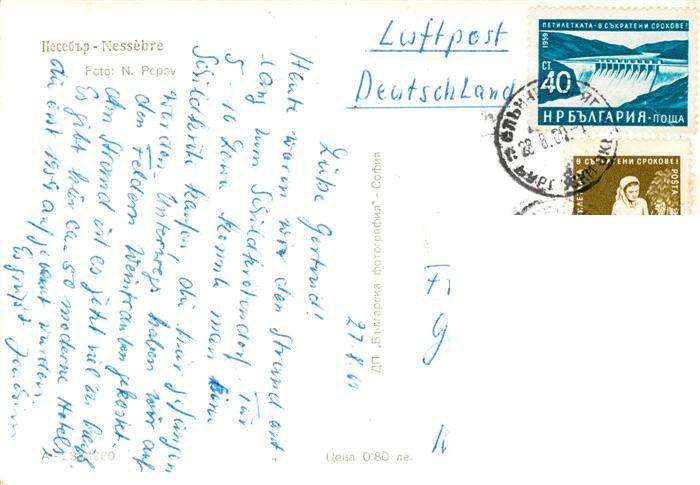 Несебър - Nessèbre
Foto: N. Popov
Luftpost
Deutschland
ПЕТИЛЕТКАТА - В СЪКРАТЕНИ СРОКОВЕ!
1959
СТ. 40
НР БЪЛГАРИЯ · ПОЩА
В СЪКРАТЕНИ СРОКОВЕ!
POŠTA
Liebe Gertrud!
Heute waren wir den Strand ent-
lang zum Schildkrötendorf. Für
5 - 10 Lewa konnte man eine
Schildkröte kaufen, die hier gefangen
werden. Unterwegs haben wir auf
den Feldern Weintrauben gekostet.
Am Strand ist es jetzt viel
Es gibt hier ca. 50 moderne Hotels,
die erst 1959 aufgebaut wurden.
Es grüßt
27.8.60
ДП „Българска фотография" - София
Цена 0·80 лв.